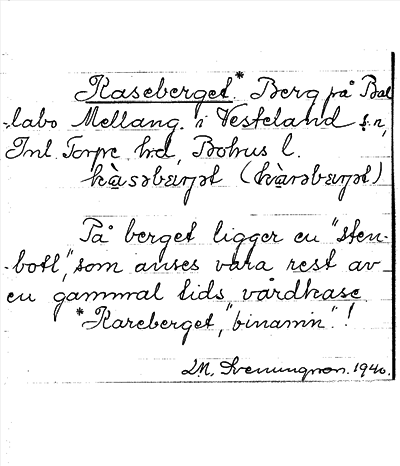 Kaseberget.* Berg på Bal
labo Mellang. i Vesteland s:n,
Inl. Torpe h:d, Bohus l.
kàsəbærjət (kàrəbærjət)
På berget ligger en "sten-
-bott", som anses vara rest av
en gammal tids vårdkase
*Kareberget, "binamn".!
LM. Svenungson. 1940.